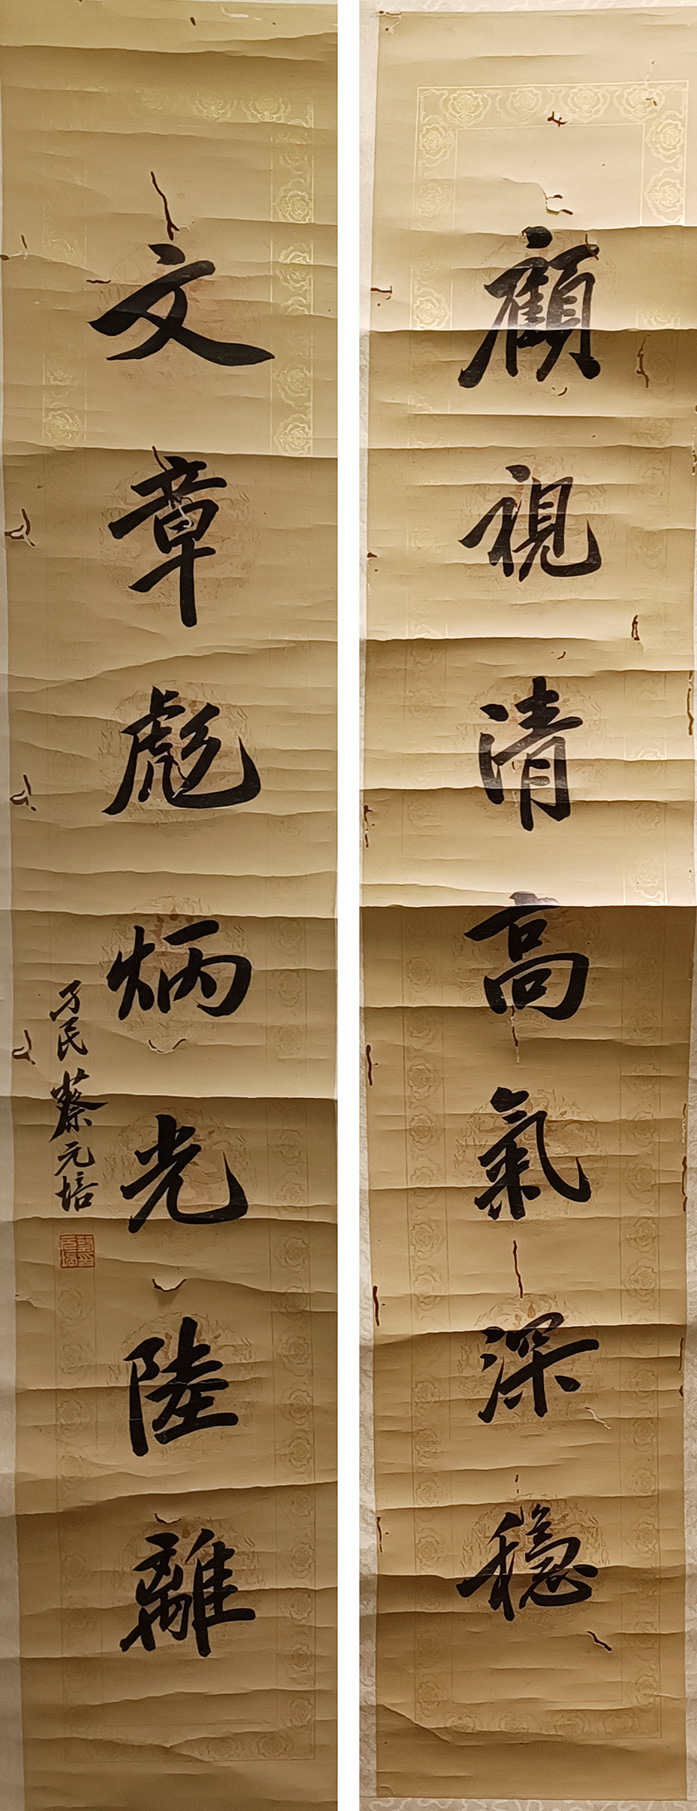 顧視清高氣深穩
文章彪炳光陸離
孑民蔡元培